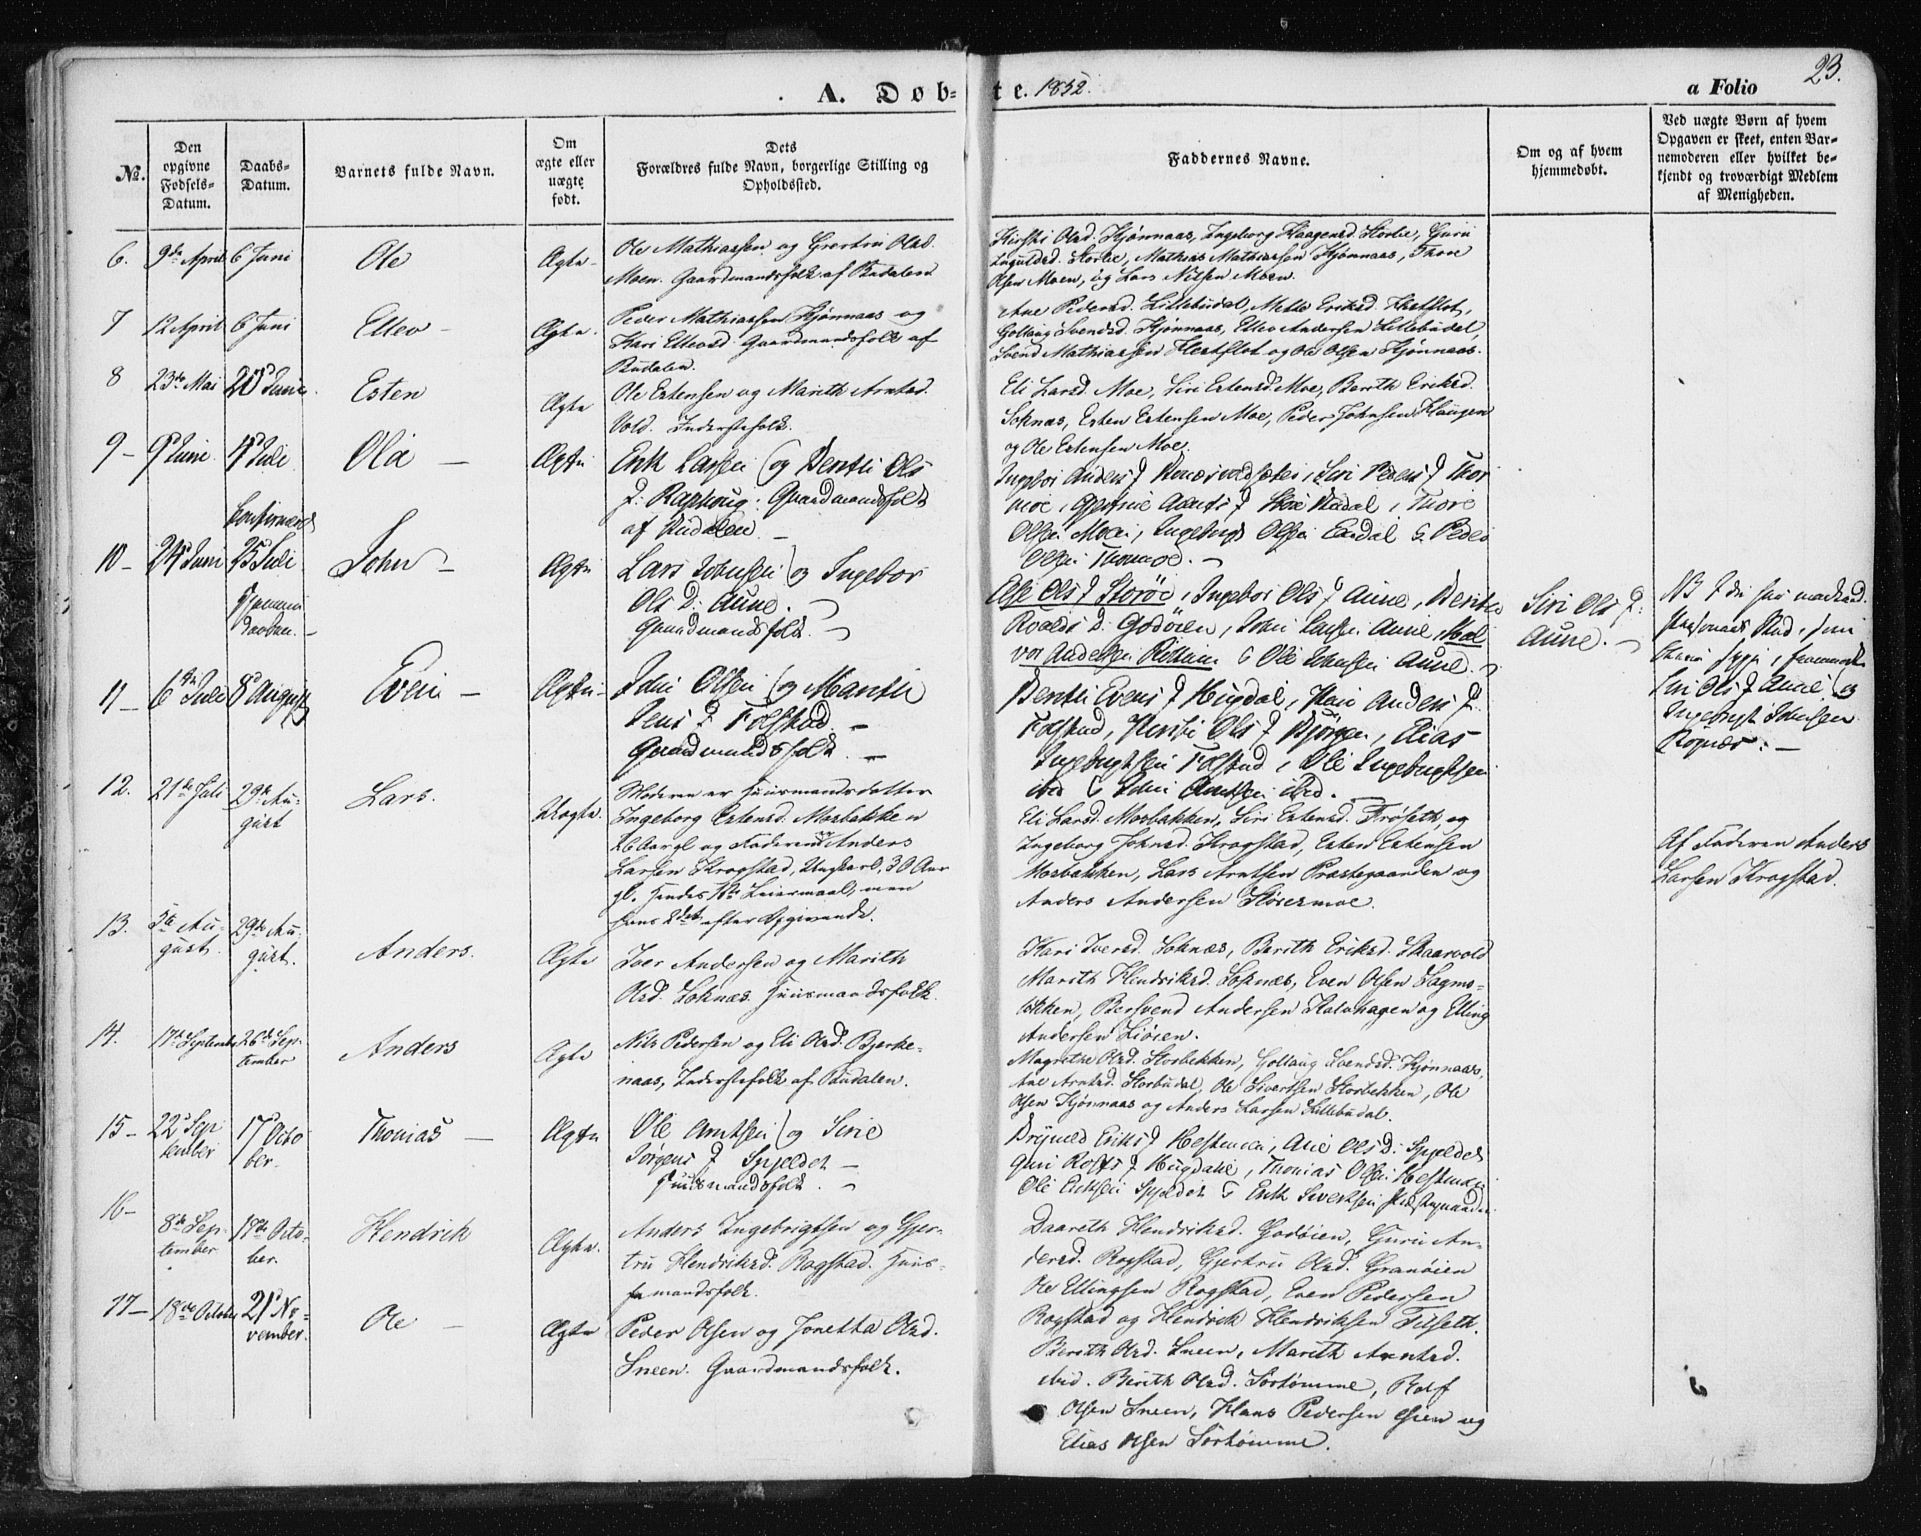 A. Døb- te. 1852.
a Folio 23.
No.
Den opgivne Fødsels-Datum.
Daabs-Datum.
Barnets fulde Navn.
Om ægte eller uægte født.
Dets Forældres fulde Navn, borgerlige Stilling og Opholdssted.
Faddernes Navne.
Om og af hvem hjemmedøbt.
Ved uægte Børn af hvem Opgaven er skeet, enten Barnemoderen eller hvilket bekjendt og troværdigt Medlem af Menigheden.
6. 9de April 6 Juni Ole Ægte
Ole Mathiassen og Gjertru Olsd.
Moen. Gaardmandsfolk af Budalen
Kirsti Olsd. Kjønnaas, Ingeborg Haagensd. Storbe, Guru
Ingulds d. Storbe, Mathias Mathiassen Kjønnaas, Thore
Olsen Moen, og Lars Nilsen Moen.
7 12 April 6 Juni Ellev Ægte.
Peder Mathiassen Kjønnaas og
Kari Ellevsd. Gaardmandsfolk af
Budalen.
Ane Pedersd. Lillebudal, Mette Eriksd. Hertflot,
Gollaug Svendsd. Kjønnaas, Ellev Andersen Lillebudal,
Svend Mathiassen Hertflot og Ole Olsen Kjønnaas.
8 23de Mai 20 Juni Esten Ægte
Ole Estensen og Marith Arntsd.
Vold. Inderstefolk.
Eli Larsd. Moe, Siri Estensd. Moe, Berith Eriksd.
Soknæs, Esten Estensen Moe, Peder Johnsen Haugen
og Ole Estensen Moe.
9 – 9 Juni 4 Juli Ola – Ægte
Erik Larsen og Berith Ols
D: Raphoug: Gaardmandsfolk
af Budalen –
Olsen Moen, Ingebrigt Olsen Endal & Peder
Olsen
10 – 24 Juni 25 Juli John – Ægte
Lars Johnsen og Ingebor
Ols D: Aune.
Gaardmandsfolk.
Ols D Storøe, Ingebor Ols D Aune, Berith
Roalds D: Godøien, John Larsen Aune, Hal
vor Andersen & Ole Johnsen Aune.
Siri Ols D:
Aune. –
Siri Ols D Aune og
Ingebrigt Johnsen
Rognæs. –
11 – 6 Juli 8 August Even – Ægte
John Olsen og Marith
Jens D Folstad –
Gaardmandsfolk. –
Berith Evens D Hugdal, Anders D
Folstad, Kirsti Ols D Bjørgen, Elias
Ingebrigtsen Folstad, Ole Ingebrigtsen
ibid & John Arntsen ibid. –
12. 21de Juli 29de Au-
gust Lars. Uægte.
Moderen er Huusmandsdatter
Ingeborg Estensd. Mosbakken
26 Aar gl og Faderen Anders
Larsen Krogstad, Ungkarl, 30 Aar
gl. Hendes 1ste Leiermaal, men
hans 2det efter Opgivende.
Eli Larsd. Mosbakken, Siri Estensd. Frøseth, og
Ingeborg Johnsd. Krogstad, Esten Estensen
Mosbakken, Lars Arntsen Præstegaarden og
Anders Andersen Størenmoe.
Af Faderen Anders
Larsen Krogstad.
13. 5te Au-
gust. 29de Au-
gust. Anders. Ægte
Iver Andersen og Marith
Olsd. Soknæs. Huusmandsfolk.
Kari Iversd. Soknæs, Berith Eriksd. Skaarvold
Marith Hendriksd. Soknæs, Even Olsen Sagmo-
bakken, Bersvend Andersen Kalvhagen og Elling
Andersen Liøien.
14. 17de September 26de Sep-
tember Anders Ægte
Nils Pedersen og Eli Olsd. Bjerke-
naas, Inderstefolk af Budalen.
Magrethe Olsd. Storbekken, Gollaug Svendsd. Kjønnaas,
Ane Arntsd. Storbudal, Ole Sivertsen Storbekken, Ole
Olsen Kjønnaas og Anders Larsen Lillebudal.
15 – 22 Sep
tember 17 Octo
ber. Thomas – Ægte
Ole Arntsen og Siri
Jørgens D Spjeldet –
Huusmandsfolk. –
Eriks D Hestmoen, Ane Ols D: Spjeldet
Guri Rolfs D Hugdahl, Thomas Olsen Hestmoen
Ole Eriksen Spjeldet & Erik Sivertsen
16 – 8de Sep-
tember 17de Octo-
ber. Hendrik Ægte.
Anders Ingebrigtsen og Gjer-
tru Hendriksd. Rogstad. Huus-
mandsfolk.
Daareth Hendriksd. Godøien, Guru An-
dersd. Rogstad, Gjertru Olsd. Granøien
Ole Ellingsen Rogstad, Even Pedersen
Rogstad og Hendrik Hendriksen Tilseth.
17 – 18de October 21 No-
vember. Ole – Ægte
Peder Olsen og Jonetta Olsd.
Sneen. Gaardmandsfolk.
Berith Olsd. Sneen, Marith Arntsd.
ibid. Berith Olsd. Sørtømme, Rolf
Olsen Sneen, Hans Pedersen og
Elias Olsen Sørtømme.